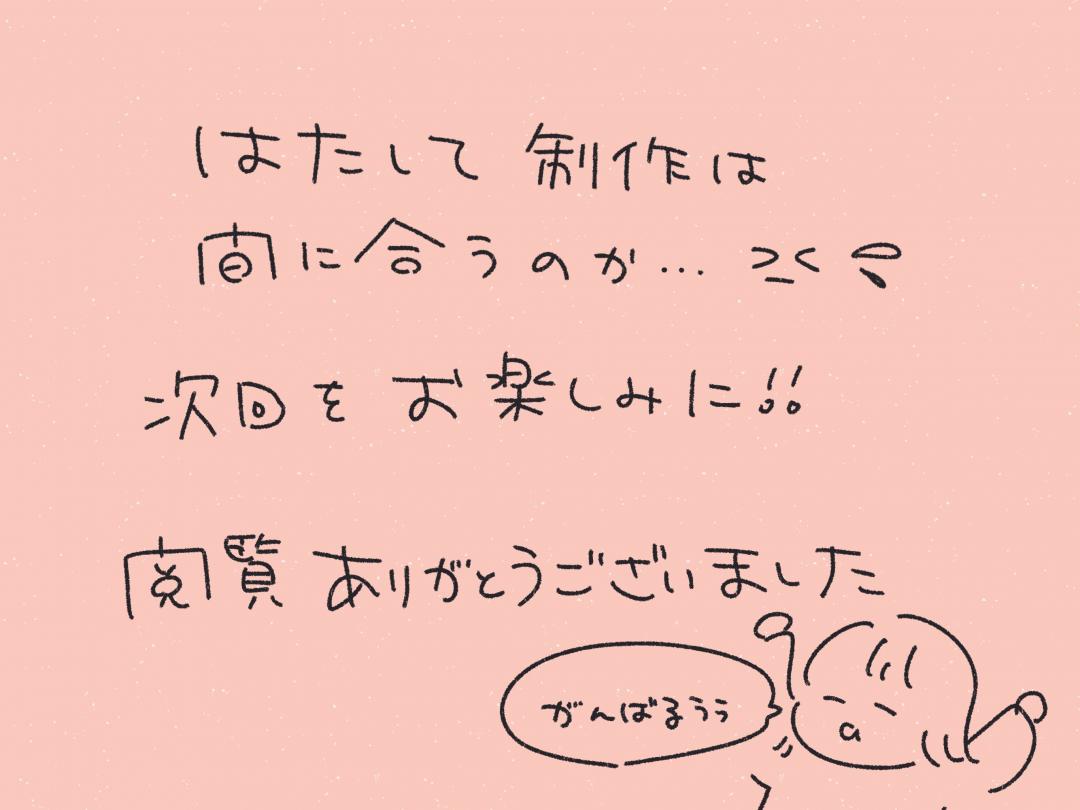 はたして 制作は
間に合うのか… ><
次回を お楽しみに!!
閲覧 ありがとうございました
がんばるぅぅ